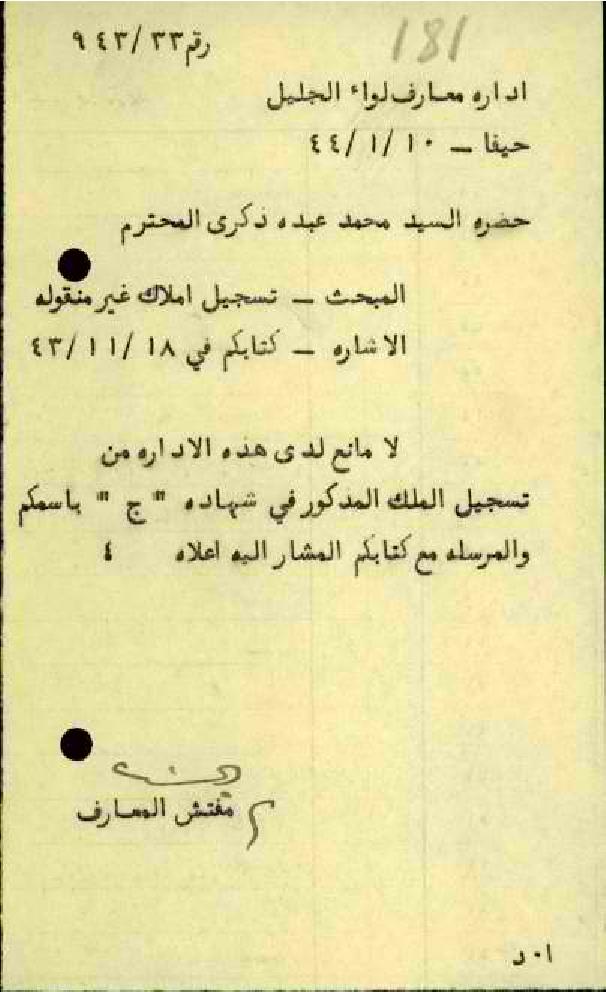 181
رقم ٩٤٣/٣٣
اداره معارف لواء الجليل
حيفا - ٤٤/١/١٠
حضره السيد محمد عبده ذكرى المحترم
المبحث - تسجيل املاك غير منقوله
الاشاره - كتابكم في ٤٣/١١/١٨
لا مانع لدى هذه الاداره من
تسجيل الملك المذكور في شهاده " ج " باسمكم
والمرسله مع كتابكم المشار اليه اعلاه ٤
مفتش المعارف
ا٠د